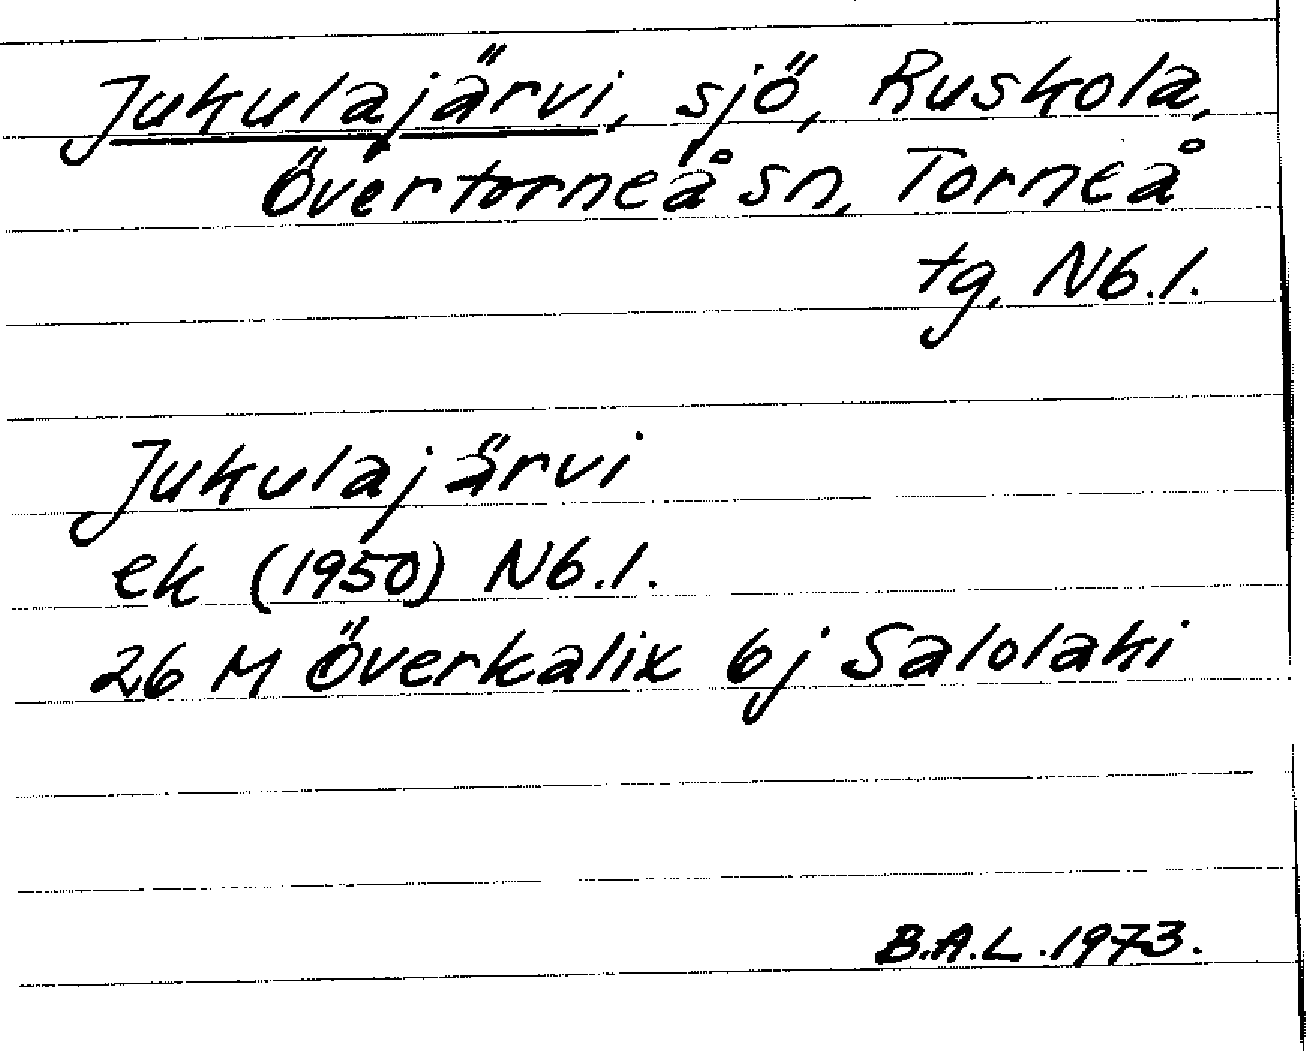 Jukulajärvi, sjö, Ruskola,
Övertorneå sn, Torneå
tg, Nb.l.
Jukulajärvi
ek (1950) Nb.l.
26 M Överkalix 6j Salolaki
B.A.L. 1973.